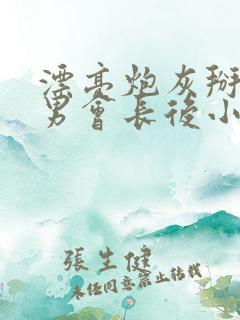 漂亮炮灰掰
男會長後小
張生健
未经同意禁止转载